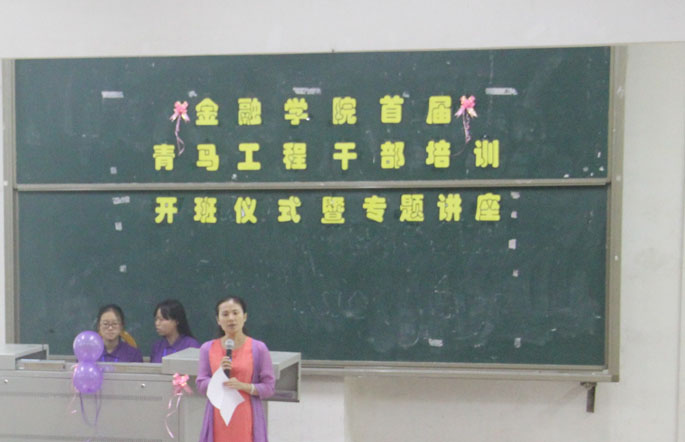 金融学院首届
青马工程干部培训
开班仪式暨专题讲座